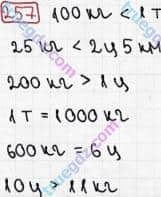 257 100 кг < 1 т
25 кг < 2 ц 5 кг
200 кг > 1 ц
1 т = 1000 кг
600 кг = 6 ц
10 ц > 11 кг